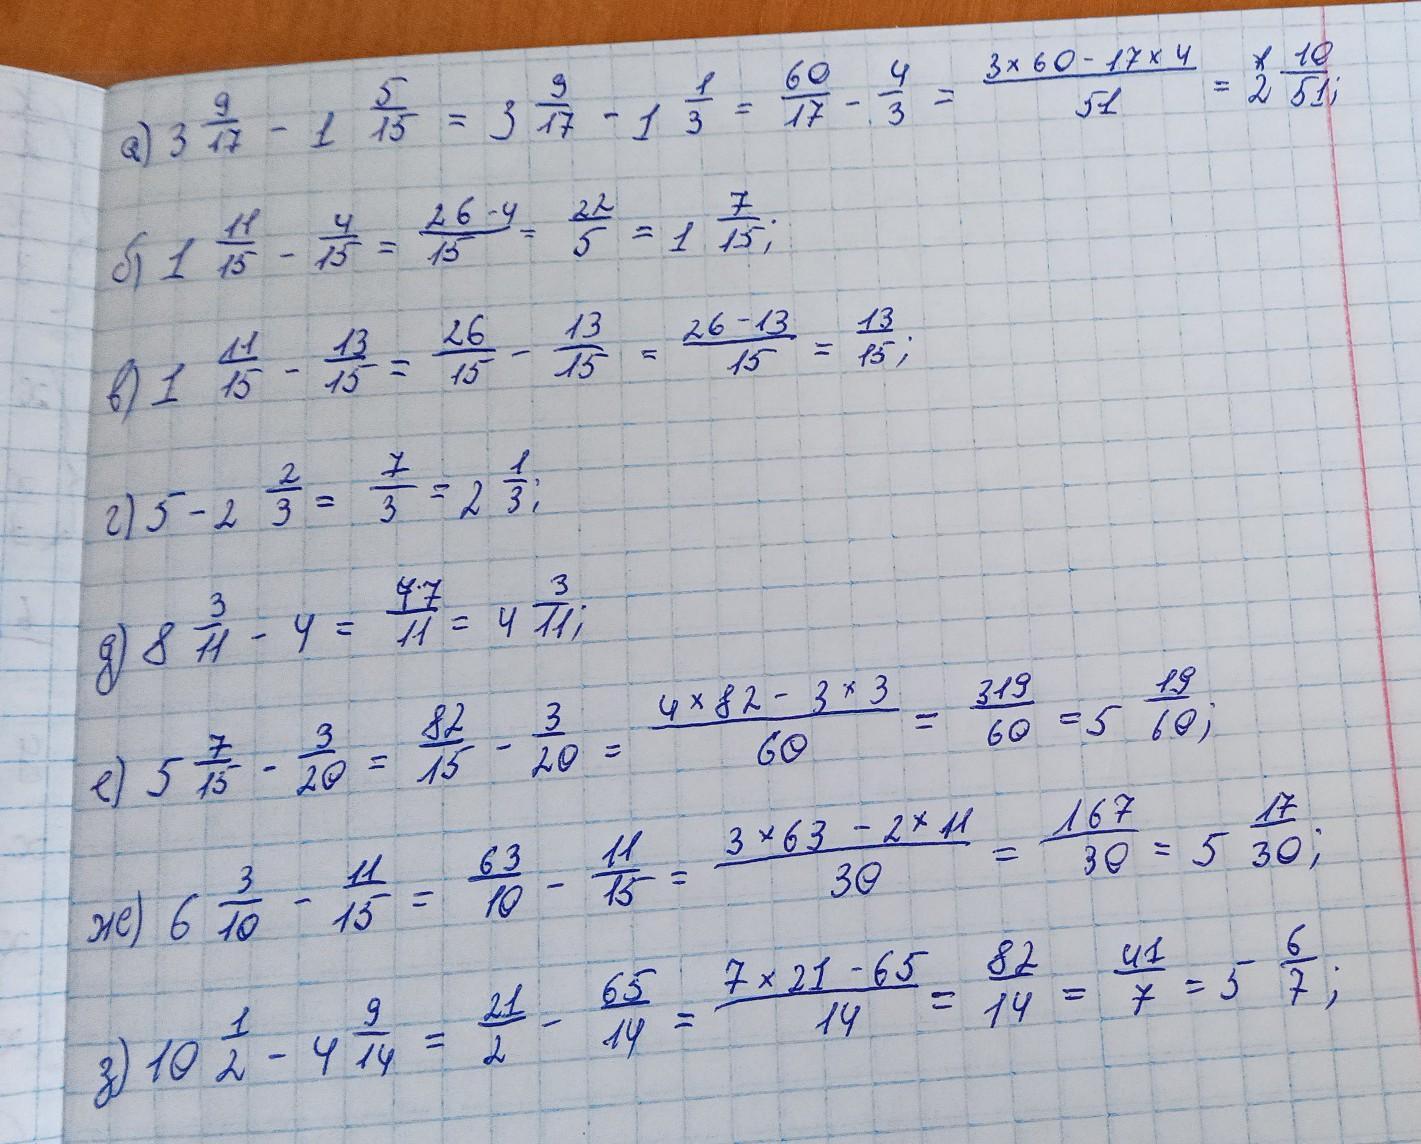 а) 3 9/17 - 1 5/15 = 3 9/17 - 1 1/3 = 60/17 - 4/3 = (3×60-17×4)/51 = 2 10/51;
б) 1 11/15 - 4/15 = (26-4)/15 = 22/5 = 1 7/15;
в) 1 11/15 - 13/15 = 26/15 - 13/15 = (26-13)/15 = 13/15;
г) 5 - 2 2/3 = 7/3 = 2 1/3;
д) 8 3/11 - 4 = 47/11 = 4 3/11;
е) 5 7/15 - 3/20 = 82/15 - 3/20 = (4×82 - 3×3)/60 = 319/60 = 5 19/60;
ж) 6 3/10 - 11/15 = 63/10 - 11/15 = (3×63 - 2×11)/30 = 167/30 = 5 17/30;
з) 10 1/2 - 4 9/14 = 21/2 - 65/14 = (7×21-65)/14 = 82/14 = 41/7 = 5 6/7;